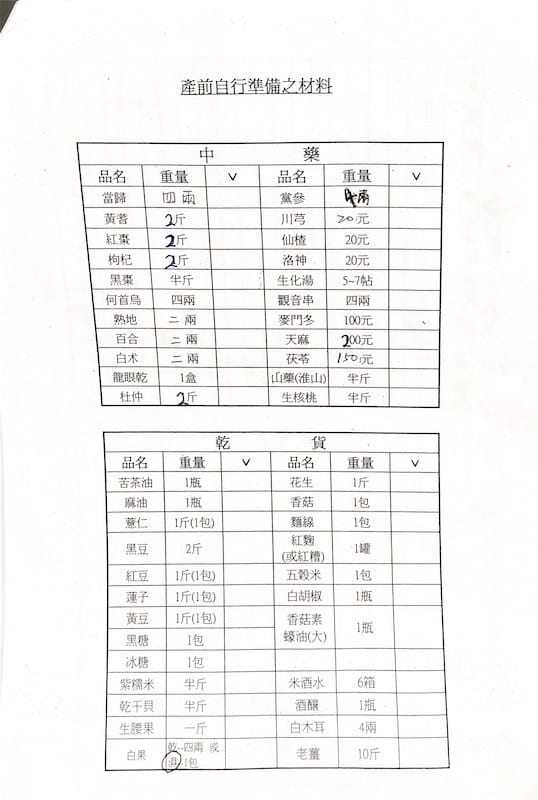 產前自行準備之材料
中 藥
品名 重量 V 品名 重量 V
當歸 四兩 黨參 4兩
黃耆 2斤 川芎 20元
紅棗 2斤 仙楂 20元
枸杞 2斤 洛神 20元
黑棗 半斤 生化湯 5~7帖
何首烏 四兩 觀音串 四兩
熟地 二兩 麥門冬 100元
百合 二兩 天麻 200元
白朮 二兩 茯苓 150元
龍眼乾 1盒 山藥(淮山) 半斤
杜仲 2斤 生核桃 半斤
乾 貨
品名 重量 V 品名 重量 V
苦茶油 1瓶 花生 1斤
麻油 1瓶 香菇 1包
薏仁 1斤(1包) 麵線 1包
黑豆 2斤 紅麴 1罐
(或紅糟)
紅豆 1斤(1包) 五穀米 1包
蓮子 1斤(1包) 白胡椒 1瓶
黃豆 1斤(1包) 香菇素 1瓶
黑糖 1包 蠔油(大)
冰糖 1包
紫糯米 半斤 米酒水 6箱
乾干貝 半斤 酒釀 1瓶
生腰果 一斤 白木耳 4兩
白果 乾--四兩 或 老薑 10斤
濕--1包